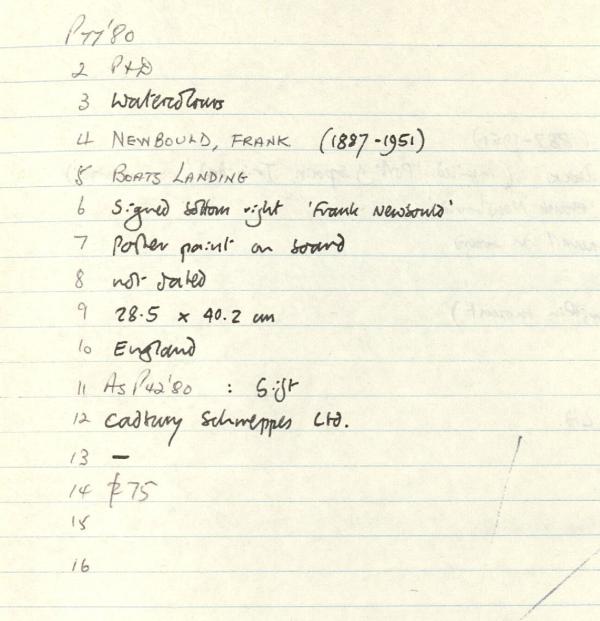 P77'80
2 P+D
3 Watercolours
4 NEWBOULD, FRANK (1887-1951)
5 BOATS LANDING
6 Signed bottom right 'Frank Newbould'
7 Poster paint on board
8 not dated
9 28.5 x 40.2 cm
10 England
11 As P42'80 : Gift
12 Cadbury Schweppes Ltd.
13 —
14 £75
15
16